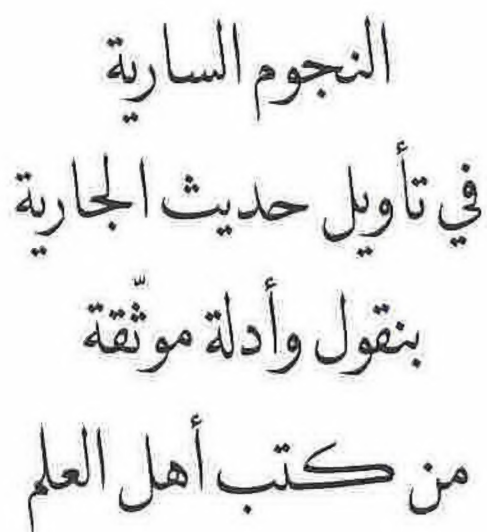 النجوم السارية
في تأويل حديث الجارية
بنقول وأدلة موثّقة
من كتب أهل العلم